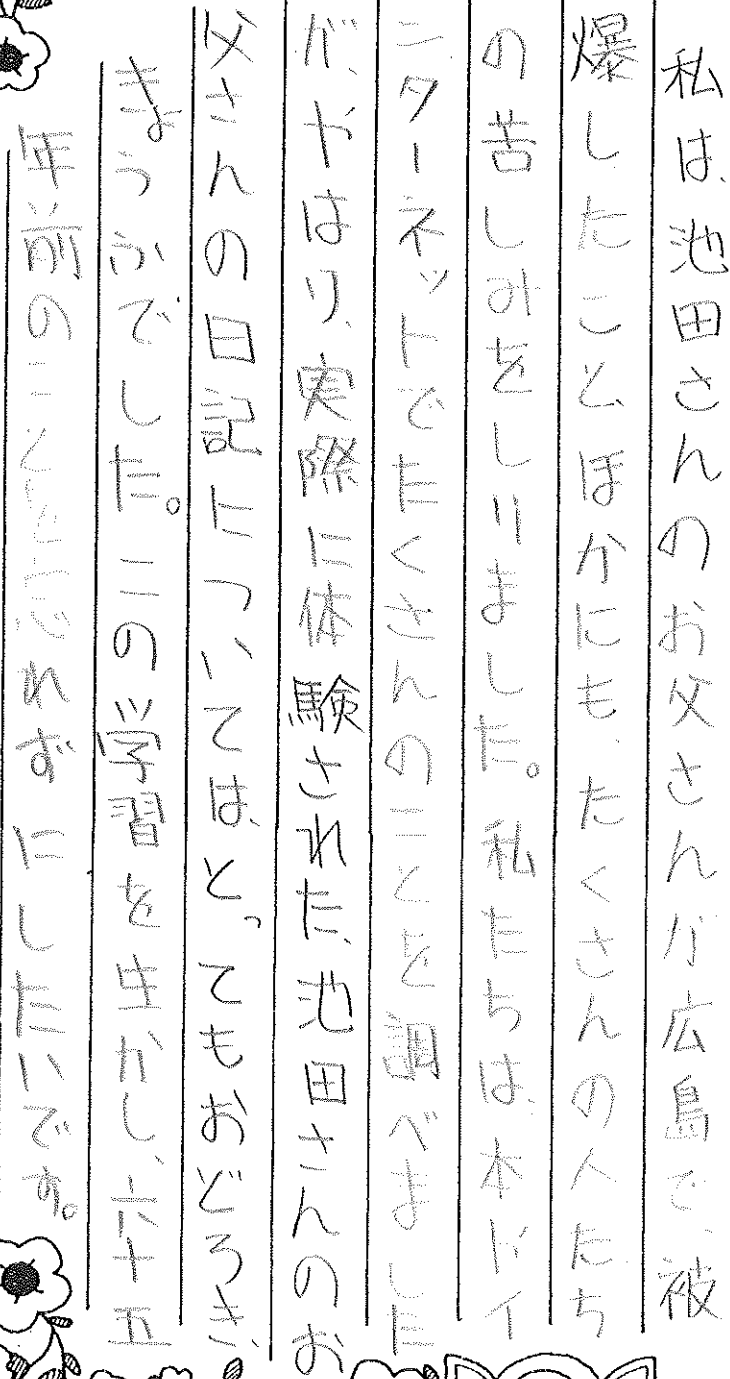 私は、池田さんのお父さんが広島で、被
爆したこと、ほかにも、たくさんの人たち
の苦しみをしりました。私たちは、本ドイ
ンターネットでたくさんのことを調べました
が、やはり、実際に体験された、池田さんのお
父さんの日記については、と、てもおどろき、
きょうかでした。この学習を生かし、六十五
年前のことをわすれずにしたいです。